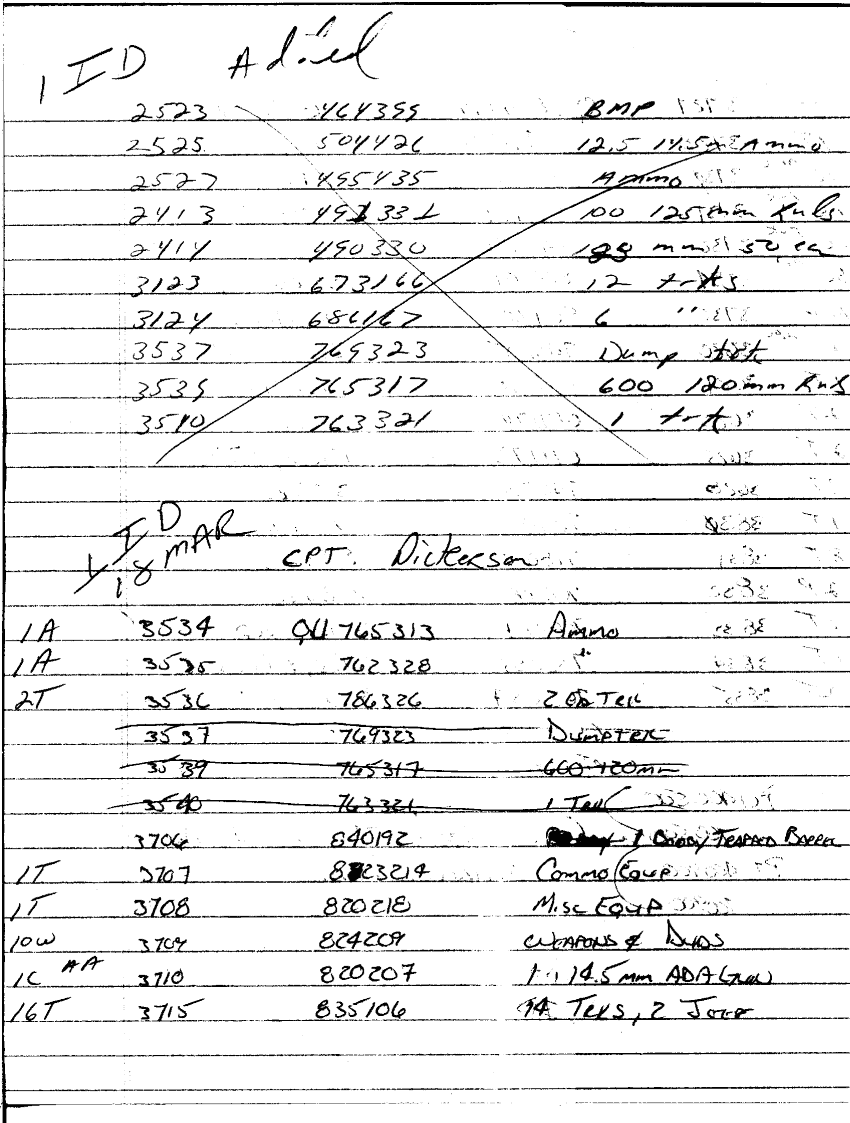 1 ID Added
2523 464399 BMP
2525 504426 12.5 14.5 Ammo
2527 495435 Ammo
2413 491331 100 125mm Rnds
2414 490330 mm 50 ea
3123 673166 12 trks
3124 686167 6 "
3537 769323 Dump trk
3539 765317 600 120mm Rnds
3540 763321 1 trk
1 ID
18 MAR CPT. Dickerson
1A 3534 QU 765313 Ammo
1A 3535 762328 "
2T 3536 786326 2 Trk
3537 769323 Dump Trk
3539 765317 600 120mm
3540 763321 1 Trk
3706 840192 1 Booby Trapped Barrel
1T 3707 823214 Commo Equip
1T 3708 820218 Misc Equip
10W 3709 824209 Weapons & Duds
1C AA 3710 820207 1 14.5mm ADA
16T 3715 835106 14 Trks, 2 Jeep